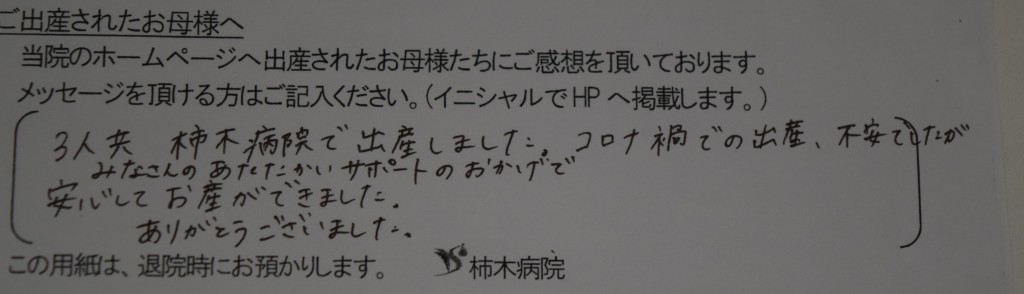 ご出産されたお母様へ
当院のホームページへ出産されたお母様たちにご感想を頂いております。
メッセージを頂ける方はご記入ください。(イニシャルでHPへ掲載します。)
3人共 柿木病院で出産しました。コロナ禍での出産、不安でしたが
みなさんのあたたかいサポートのおかげで
安心してお産ができました。
ありがとうございました。
この用紙は、退院時にお預かりします。 柿木病院